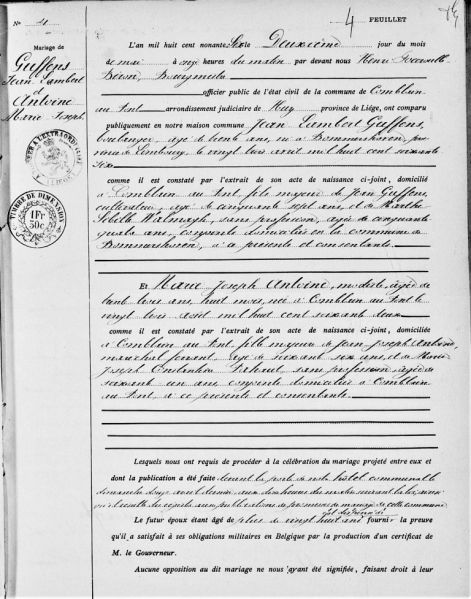 4 FEUILLET
N° 4
Mariage de
Guffens
Jean Lambert
et
Antoine
Marie Joseph
TIMBRE DE DIMENSION
1 Fr
50 c
L'an mil huit cent nonante six le Deuxième jour du mois
de mai à onze heures du matin par devant nous Henri
officier public de l'état civil de la commune de Comblain
au Pont arrondissement judiciaire de Huy province de Liége, ont comparu
publiquement en notre maison commune Jean Lambert Guffens,
boulanger, âgé de trente ans, né à Bommershoven, pro-
vince de Limbourg, le vingt trois avril mil huit cent soixante
six
comme il est constaté par l'extrait de son acte de naissance ci-joint, domicilié
à Comblain au Pont, fils majeur de Jean Guffens,
cultivateur, âgé de cinquante sept ans, et de Marthe
Sibille, sans profession, âgée de cinquante
quatre ans, conjoints domiciliés en la commune de
Bommershoven, à ce présents et consentants.
Et Marie Joseph Antoine, modiste, âgée de
trente trois ans, huit mois, née à Comblain au Pont le
vingt trois août mil huit cent soixante deux
comme il est constaté par l'extrait de son acte de naissance ci-joint, domiciliée
à Comblain au Pont, fille majeure de Jean Joseph Antoine
maréchal ferrant, âgé de soixante six ans, et de Marie
Joseph, sans profession, âgée de
soixante un ans, conjoints domiciliés à Comblain
au Pont, à ce présents et consentants.
Lesquels nous ont requis de procéder à la célébration du mariage projeté entre eux et
dont la publication a été faite devant la porte de notre hôtel communal le
dimanche douze avril dernier, aux dix heures du matin
publications de mariage de cette commune
Le futur époux étant âgé de plus de vingt huit ans fournir la preuve
qu'il a satisfait à ses obligations militaires en Belgique par la production d'un certificat de
M. le Gouverneur.
Aucune opposition au dit mariage ne nous ayant été signifiée, faisant droit à leur